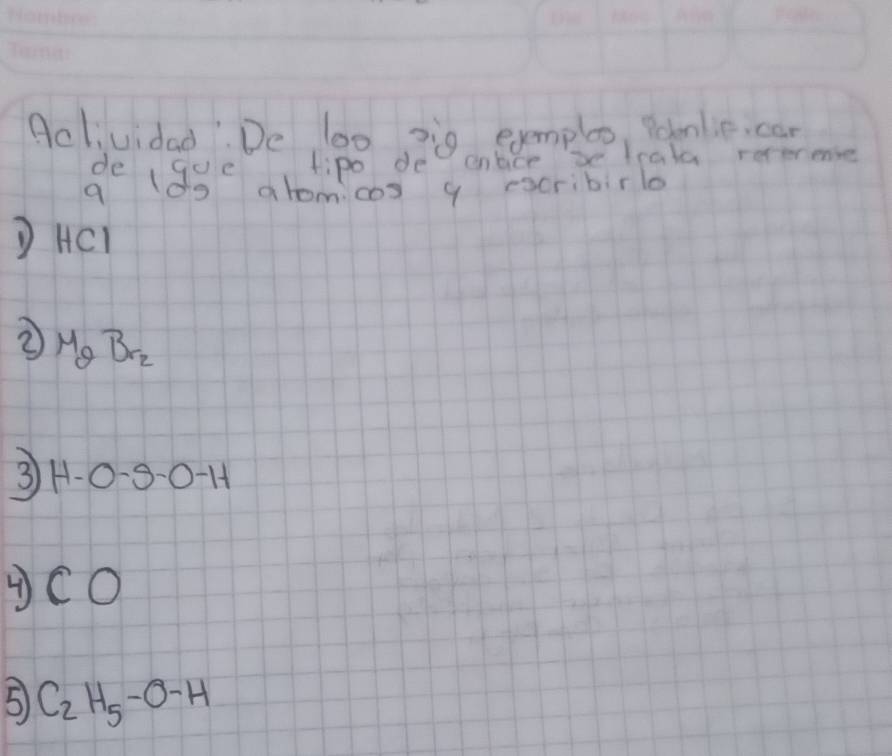 Nombre:
Tema:
Folio:
Actividad: De los sig ejemplos, identificar
de que tipo de enlace se trata referente
a los atomicos y escribirlo
1) HCl
2) MgBr₂
3) H-O-S-O-H
4) CO
5) C₂H₅-O-H